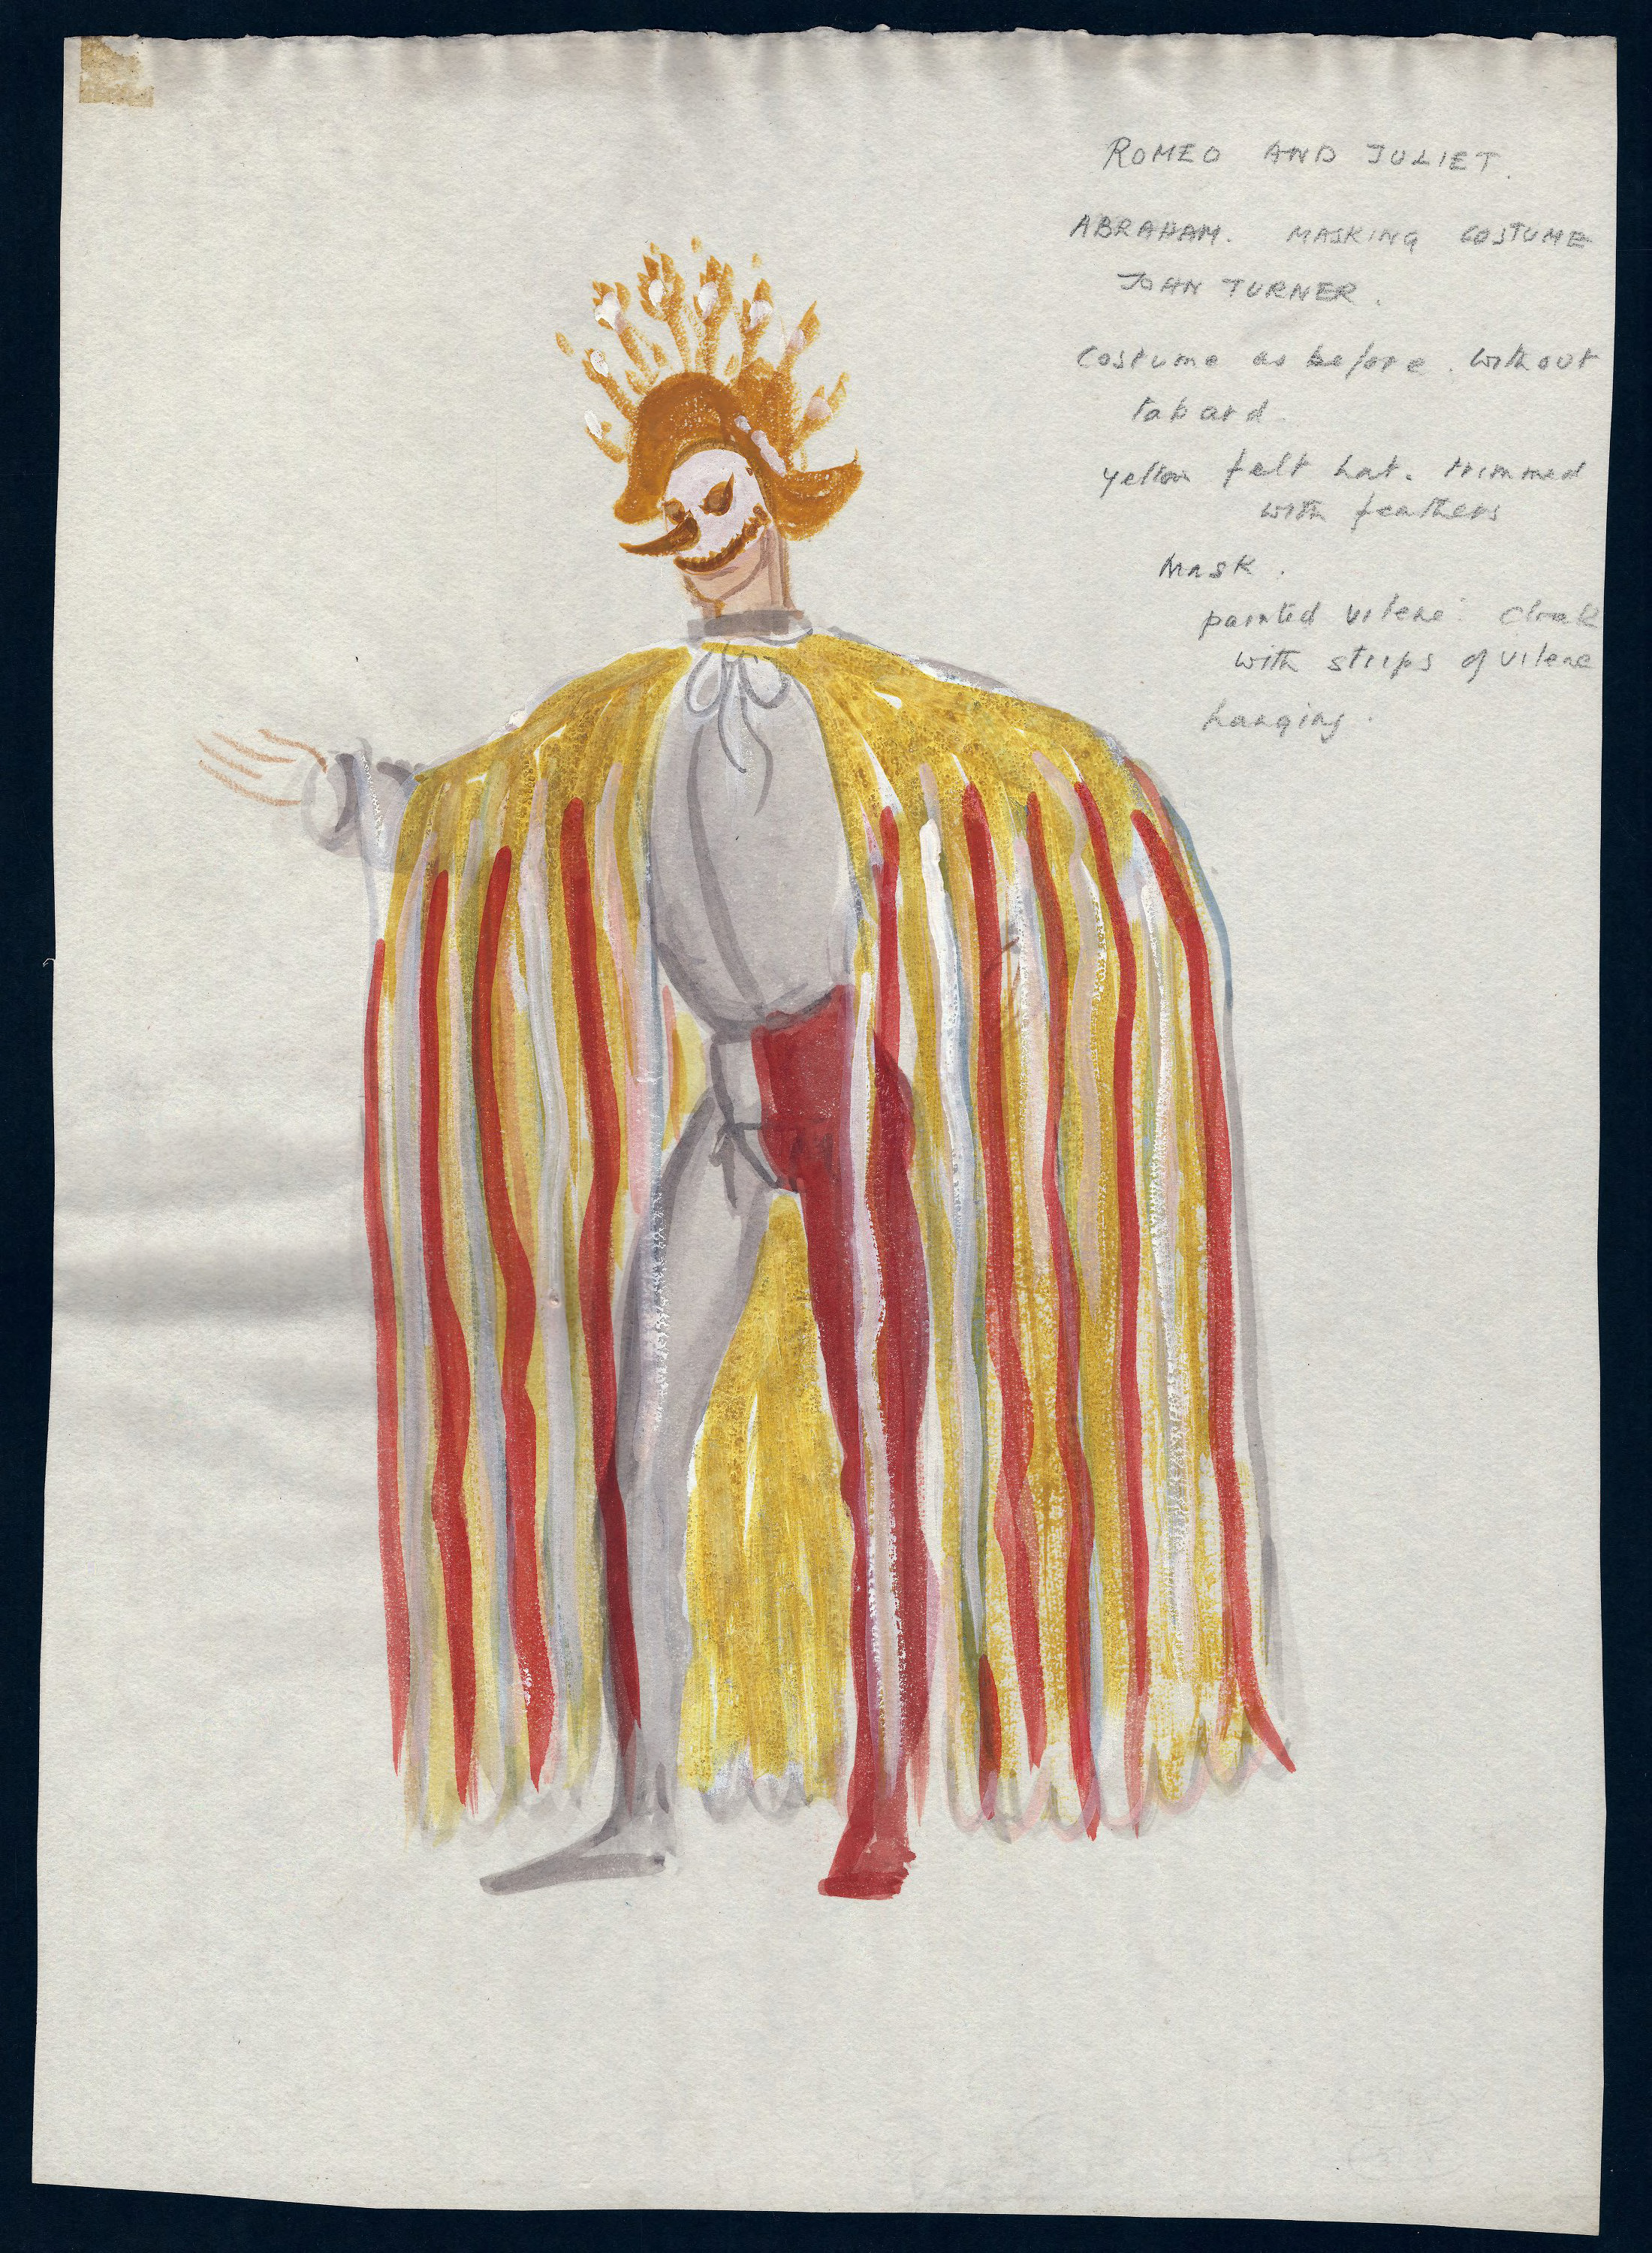 ROMEO AND JULIET.
ABRAHAM. MASKING COSTUME
JOHN TURNER.
Costume as before. without
tabard.
yellow felt hat. trimmed
with feathers
Mask.
painted vilene. cloak
with strips of vilene
hanging.